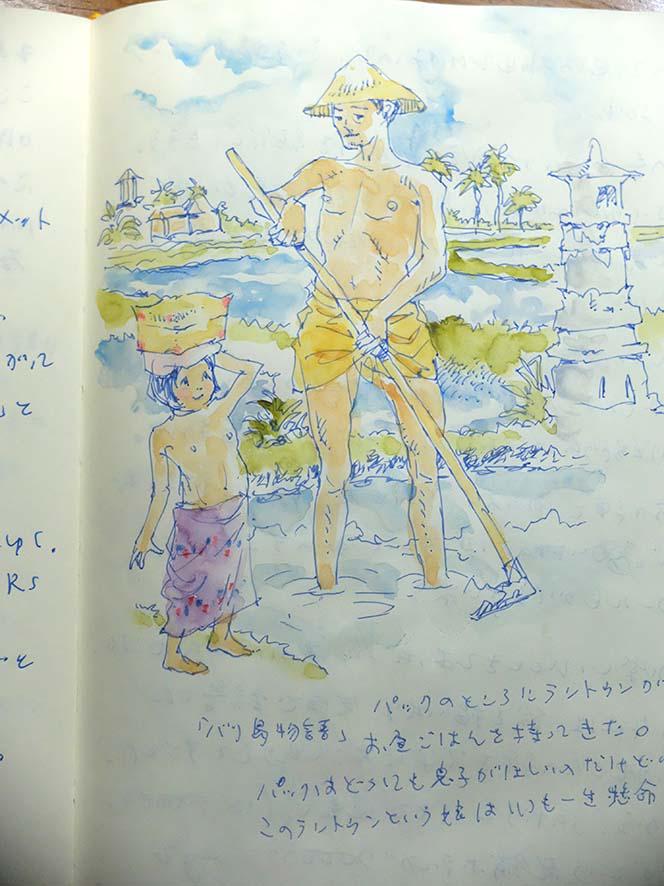 メット
がして
と
RS
と
パックのところにラントゥンが
「バリ島物語」 お昼ごはんを持ってきた。
パックはどうしても息子がほしいのだけどの
このラントゥンという娘はいつも一生懸命